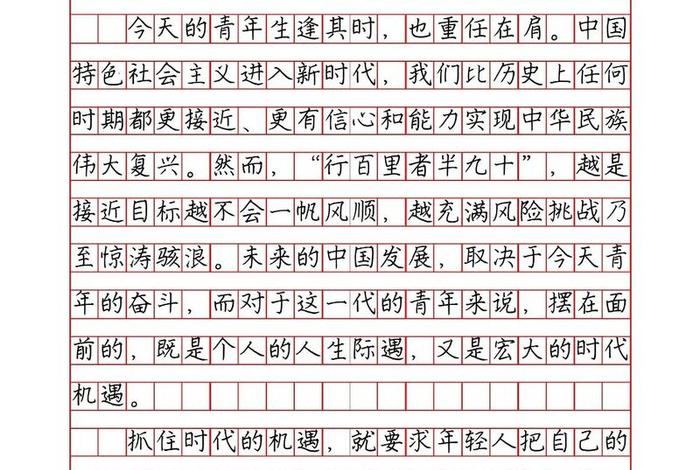 今天的青年生逢其时，也重任在肩。中国
特色社会主义进入新时代，我们比历史上任何
时期都更接近、更有信心和能力实现中华民族
伟大复兴。然而，“行百里者半九十”，越是
接近目标越不会一帆风顺，越充满风险挑战乃
至惊涛骇浪。未来的中国发展，取决于今天青
年的奋斗，而对于这一代的青年来说，摆在面
前的，既是个人的人生际遇，又是宏大的时代
机遇。
抓住时代的机遇，就要求年轻人把自己的